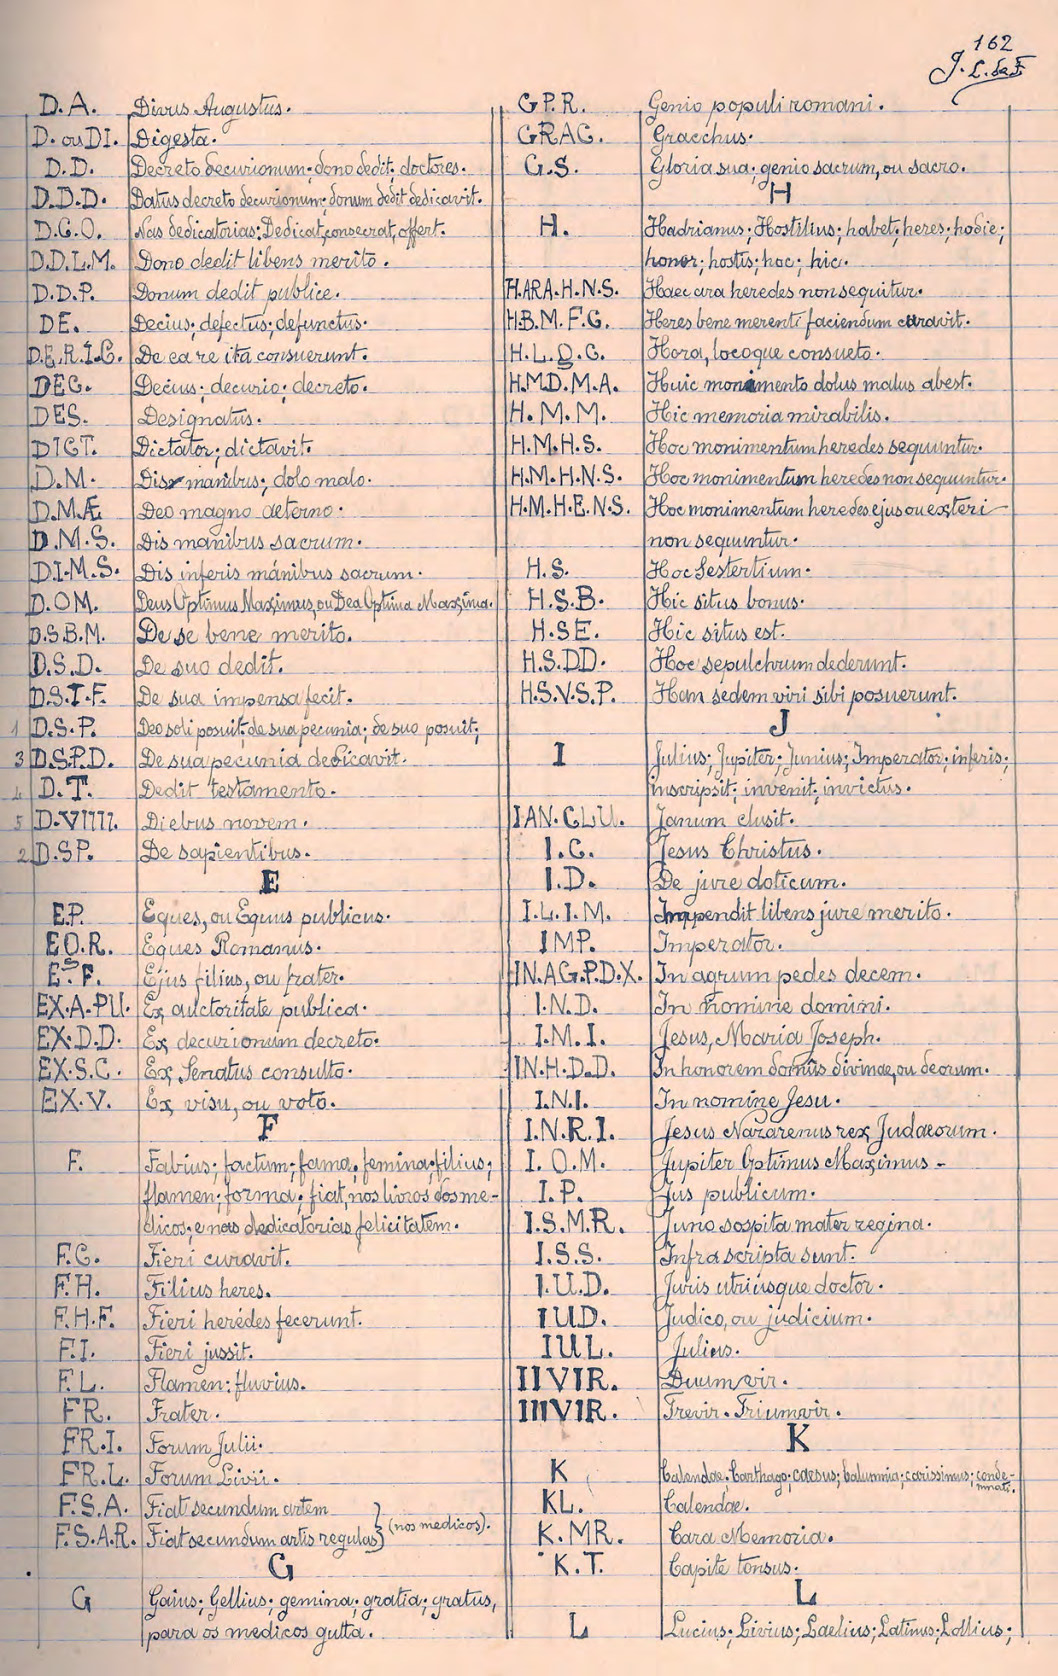 162
J. L. de F.
D.A. Divus Augustus.
D. ou DI. Digesta.
D.D. Decreto decurionum; dono dedit; doctores.
D.D.D. Datus decreto decurionum; donum dedit dedicavit.
D.C.O. Nas dedicatorias: Dedicat, consecrat, offert.
D.D.L.M. Dono dedit libens merito.
D.D.P. Donum dedit publice.
DE. Decius; defectus; defunctus.
D.E.R.I.C. De ea re ita consuerunt.
DEC. Decius; decurio; decreto.
DES. Designatus.
DICT. Dictator; dictavit.
D.M. Dis manibus; dolo malo.
D.M.Æ Deo magno aeterno.
D.M.S. Dis manibus sacrum.
D.I.M.S. Dis inferis mánibus sacrum.
D.OM. Deus Optimus Maximus, ou Dea Optima Maxima.
D.S.B.M. De se bene merito.
D.S.D. De suo dedit.
D.S.I.F. De sua impensa fecit.
1 D.S.P. Deo soli posuit; de sua pecunia; de suo posuit;
3 D.S.P.D. De sua pecunia dedicavit.
4 D.T. Dedit testamento.
5 D.VIIII. Diebus novem.
2 D.SP. De sapientibus.
E
E.P. Eques, ou Equus publicus.
EQ.R. Eques Romanus.
E. F. Ejus filius, ou frater.
EX.A.PU. Ex auctoritate publica.
EX.D.D. Ex decurionum decreto.
EX.S.C. Ex Senatus consulto.
EX.V. Ex visu, ou voto.
F
F. Fabius; factum; fama; femina; filius;
flamen; forma; fiat, nos livros dos me-
dicos; e nas dedicatorias felicitatem.
F.C. Fieri curavit.
F.H. Filius heres.
F.H.F. Fieri herédes fecerunt.
F.I. Fieri jussit.
F.L. Flamen; fluvius.
FR. Frater.
FR.I. Forum Julii.
FR.L. Forum Livii.
F.S.A. Fiat secundum artem
F.S.A.R. Fiat secundum artis regulas } (nos medicos).
G
G Gaius; Gellius; gemina; gratia; gratus,
para os medicos gutta.
G.P.R. Genio populi romani.
GRAC. Gracchus.
G.S. Gloria sua; genio sacrum, ou sacro.
H
H. Hadrianus; Hostilius; habet; heres; hodie;
honor; hostis; hoc; hic.
H.ARA.H.N.S. Haec ara heredes non sequitur.
H.B.M.F.C. Heres bene merenti faciendum curavit.
H.L.Q.C. Hora, locoque consueto.
H.M.D.M.A. Huic monimento dolus malus abest.
H.M.M. Hic memoria mirabilis.
H.M.H.S. Hoc monimentum heredes sequuntur.
H.M.H.N.S. Hoc monimentum heredes non sequuntur.
H.M.H.E.N.S. Hoc monimentum heredes ejus ou exteri
non sequuntur.
H.S. Hoc Sestertium.
H.S.B. Hic situs bonus.
H.S E. Hic situs est.
H.S.DD. Hoc sepulchrum dederunt.
H.S.V.S.P. Han sedem viri sibi posuerunt.
J
I Julius; Jupiter; Junius; Imperator; inferis;
inscripsit; invenit; invictus.
IAN.CLU. Janum clusit.
I.C. Jesus Christus.
I.D. De jure doticum.
I.L.I.M. Impendit libens jure merito.
IMP. Imperator.
IN.AG.P.D.X. In agrum pedes decem.
I.N.D. In nomine domini.
I.M.I. Jesus, Maria Joseph.
IN.H.D.D. In honorem domûs divinae, ou deorum.
I.N.I. In nomine Jesu.
I.N.R.I. Jesus Nazarenus rex Judaeorum.
I.O.M. Jupiter Optimus Maximus -
I.P. Jus publicum.
I.S.M.R. Juno sospita mater regina.
I.S.S. Infra scripta sunt.
I.U.D. Juris utriusque doctor.
IUD. Judico, ou judicium.
IUL. Julius.
IIVIR. Duumvir.
IIIVIR. Trevir. Triumvir.
K
K Calendae. Carthago; caesus; calumnia; carissimus; conde-
mnati.
KL. Calendae.
K.MR. Cara Memoria.
K.T. Capite tonsus.
L
L Lucius; Livius; Laelius; Latinus; Lollius;